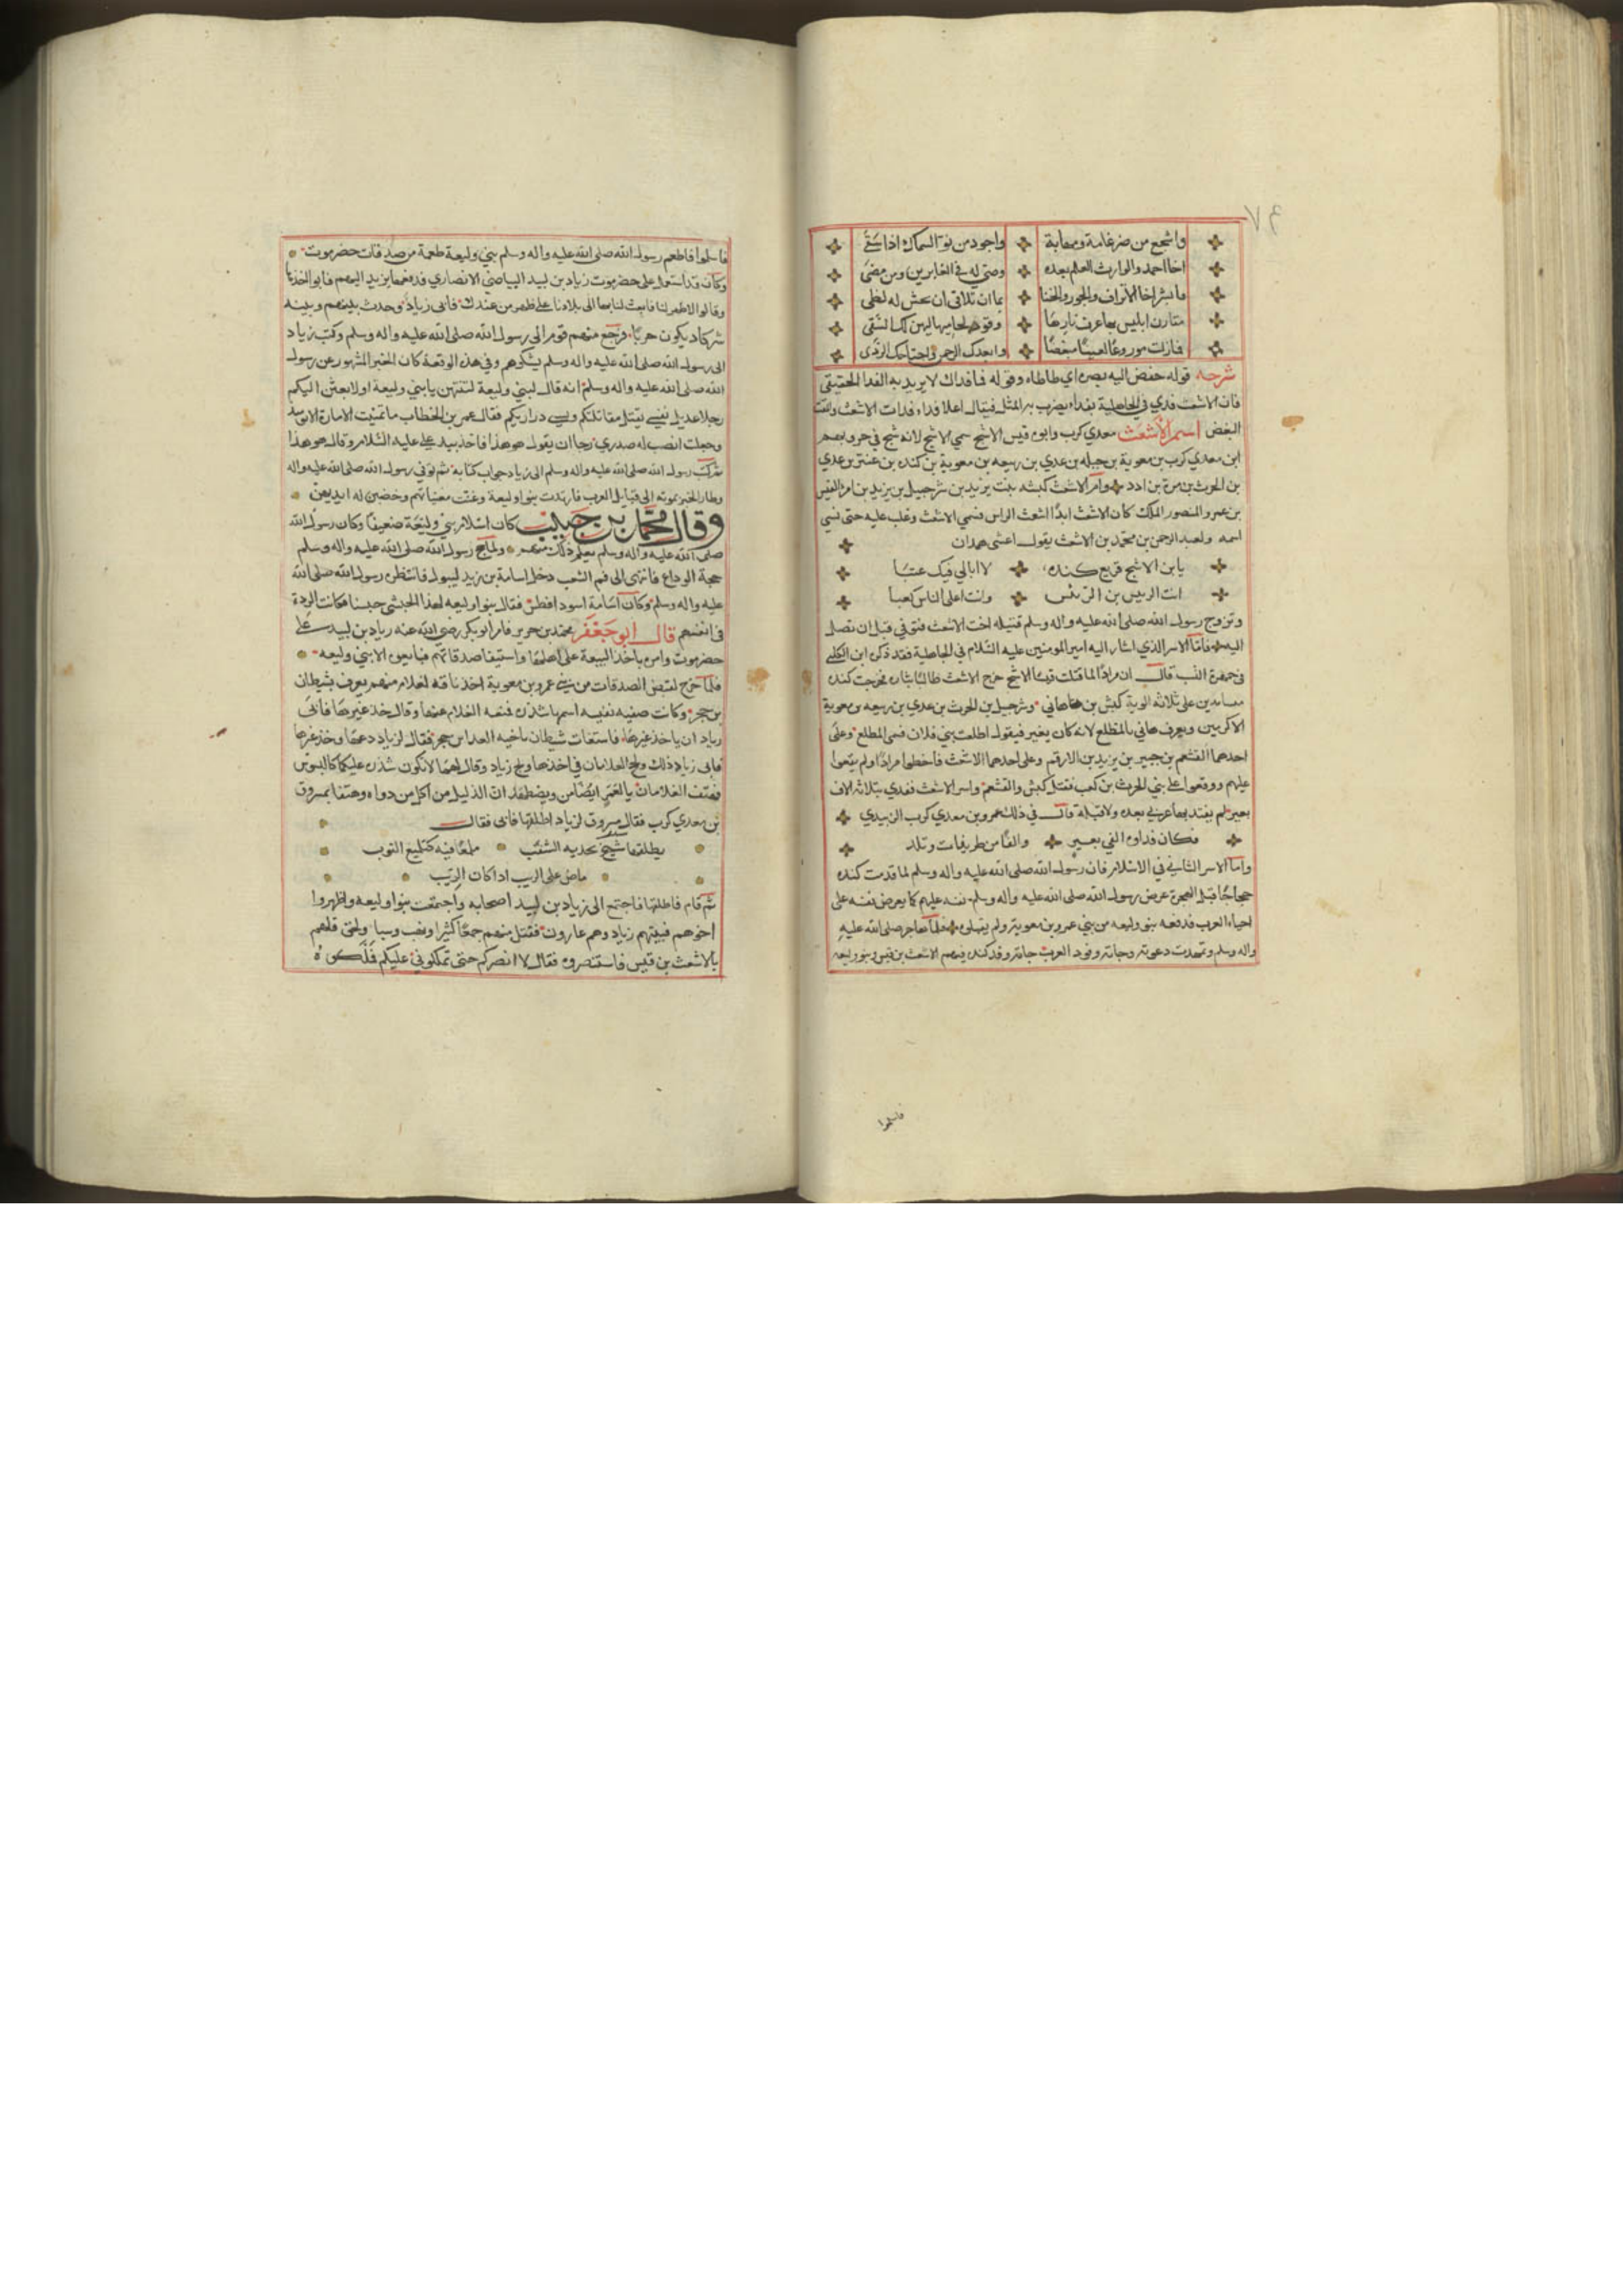 ٦٧
واشجع من ضرغامة ومهابة واجود من نوّ السماك اذا سَقَى
اخا احمد والوارث العلم بعده وصىّ له فى الغابرين ومن مضىَ
فازلت موروعًا لعينًا مبغضًا وابعدك الرحمن
شرحه قوله خفض اليه بصره اي طاطاه وقوله فما فداك لا يريد به الفدا الحقيقي
فان الاشعث فدي في الجاهلية بفداء يضرب به المثل فيقال اعلا فداء فدات الاشعث والمقت
البغض اسم الأشعَث معدي كرب وابوه قيس الاشج سمي الاشج لانه شج في حروبهم
ابن معدي كرب بن معوية بن جبله بن عدي بن ربيعه بن معوية بن كنده بن عدي
بن الحرث بن مرة بن ادد وام الاشعث كبشه بنت يزيد بن شرجيل بن يزيد بن امرء القيس
بن عمرو المنصور الملك كان الاشعث ابدًا اشعث الراس فسمي الاشعث وغلب عليه حتى نسي
اسمه ولعبد الرحمن بن محمّد بن الاشعث يقول اعشى همدان
يابن الاشج قريع كنده لا ابالي فيك عتبًا
انت الرييس بن الرّيئس وانت اعلى الناس كعبا
وتزوج رسول الله صلى الله عليه واله وسلم قتيله اخت الاشعث فتوفى قبل ان تصل
اليه فامّا الاسر الذي اشار اليه امير المومنين عليه السّلام في الجاهلية فقد ذكره ابن الكلبي
في جمهرة النّسب قال ان مرادًا لما قتلت قيسًا الاشج خرج الاشعث طالبًا بثاره فخرجت كنده
متساندين على ثلاثه الوية كبش بن هاني وشرجيل بن الحرث بن عدي بن ربيعه بن معوية
الاكرمين ويعرف هاني بالمطلع لانه كان يغير فيقول اطلعت بني فلان فسمى المطلع وعلى
احدهما القشعم بن جبير بن يزيد بن الارقم وعلى احدهما الاشعث فاخطوا مرادًا ولم يقعوا
عليهم ووقعوا على بني الحرث بن كعب فقتل كبش والقشعم واسر الاشعث ففدي بثلاثه الاف
بعير لم يفتد بها عربي بعده ولا قبله قال في ذلك عمرو بن معدي كرب الزبيدي
فكان فداوه الفي بعير والفًا من طريفات وتلد
وامّا الاسر الثاني في الاسلام فان رسول الله صلى الله عليه واله وسلم لما قدمت كنده
حجاجًا قبل الهجرة عرض رسول الله صلى الله عليه واله وسلم نفسه عليهم كما يعرض نفسه على
احياء العرب فدفعه بنو وليعه من بني عمرو بن معوية ولم يقبلوه فلما هاجر صلى الله عليه
واله وسلم وتمهدت دعوته وجاته وفود العرب جاته وفد كنده فيهم الاشعث بن قيس وبنو وليعه
فاسلموا
فاسلموا فاطعم رسول الله صلى الله عليه واله وسلم بني وليعة طعمة من صدقات حضرموت
وكان قد استعمل على حضرموت زياد بن لبيد البياضي الانصاري فدفعها يزيد اليهم فابوا اخذها
وقالوا لاظهر لنا فابعث لنا بها الى بلادنا على ظهر من عندك فابى زياد وحدث بينهم وبينه
شر كاد يكون حربًا فرجع منهم قوم الى رسول الله صلى الله عليه واله وسلم وكتب زياد
الى رسول الله صلى الله عليه واله وسلم يشكوهم وفي هذه الوقعة كان الخبر المشهور عن رسول
الله صلى الله عليه واله وسلم انه قال لبني وليعة لتنتهن يا بني وليعة او لابعثن اليكم
رجلا عديل نفسي يقتل مقاتلكم ويسبي دراريكم فقال عمر بن الخطاب ما تمنيت الامارة الا يوميذ
وجعلت انصب له صدري رجا ان يقول هو هذا فاخذ بيد علي عليه السّلام وقال هو هذا
ثم كتب رسول الله صلى الله عليه واله وسلم الى زياد جواب كتابه ثم توفى رسول الله صلى الله عليه واله
وطار الخبر بموته الى قبايل العرب فارتدت بنوا وليعة وغنت مغنياتهم وخضبن له ايديهن
وقال محمّد بن حبيب كان اسلام بني وليعَة ضعيفًا وكان رسول الله
صلى الله عليه واله وسلم يعلم ذلك منهم ولما حج رسول الله صلى الله عليه واله وسلم
حجة الوداع فانتهى الى فم الشعب دخل اسامة بن زيد ليبول فانتظره رسول الله صلى الله
عليه واله وسلم وكان اسَامة اسود افطس فقال بنوا وليعه لهذا الحبشى حبسنا فكانت الردة
في انفسهم قال ابو جَعْفَر محمّد بن جرير فامر ابو بكر رضي الله عنه زياد بن لبيد على
حضرموت وامره باخذ البيعة على اهلها واستيفا صدقاتهم فبايعوه الا بني وليعه
فلما خرج لقبض الصدقات من بني عمرو بن معوية اخذ ناقة لغلام منهم يعرف بشيطان
بن حجر وكانت صفيه نفيسه اسمها شذره فمنعه الغلام عنها وقال خذ غيرها فأبى
زياد ان ياخذ غيرها فاستغاث شيطان باخيه العدا بن حجر فقال لزياد دعها وخذ غيرها
فابى زياد ذلك ولج الغلامان في اخذها ولج زياد وقال لهمَا لا تكون شذره عليكما كالبسوس
فهتف الغلامان يا لعَمرٍ ايضًا من ويضطهد ان الذليل من اكل من دواه وهتفا بمسروق
بن معدي كرب فقال مسروق لزياد اطلقها فابى فقال
يطلقها شيخ بخديه الشيب ملمعًا فيه كتلميع الثوب
ماض على الريب اذا كان الريب
ثم قام فاطلقها فاجتمع الى زياد بن لبيد اصحابه واجتمعت بنوا وليعه واظهروا
امرهم فبيتهم زياد وهم غارون فقتل منهم جمعًا كثيرًا ونهب وسبا ولحق فلهم
بالاشعث بن قيس فاستنصروه فقال لا انصركم حتى تملكوني عليكم فملكوه